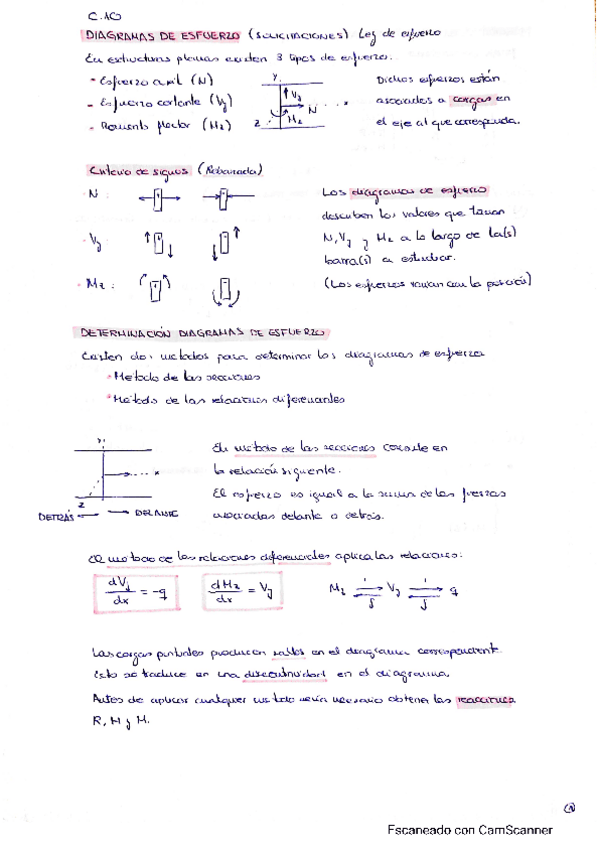 C.10
DIAGRAMAS DE ESFUERZO (SOLICITACIONES) Ley de esfuerzo
En estructuras planas existen 3 tipos de esfuerzo.
- Esfuerzo axil (N)
- Esfuerzo cortante (Vy)
- Momento flector (Mz)
y Vy N x Mz z
Dichos esfuerzos están
asociados a cargas en
el eje al que corresponda.
Criterio de signos (Rebanada)
N:
Vy:
Mz:
Los diagramas de esfuerzo
describen los valores que toman
N, Vy y Mz a lo largo de la(s)
barra(s) a estudiar.
(Los esfuerzos varían con la posición)
DETERMINACIÓN DIAGRAMAS DE ESFUERZO
Existen dos métodos para determinar los diagramas de esfuerzo
· Método de las secciones
· Método de las relaciones diferenciales
y x z
DETRÁS ← → DELANTE
El método de las secciones consiste en
la relación siguiente.
El esfuerzo es igual a la suma de las fuerzas
asociadas delante o detrás.
El método de las relaciones diferenciales aplica las relaciones:
dVy/dx = -q dMz/dx = Vy Mz Vy q
Las cargas puntuales producen saltos en el diagrama correspondiente
Esto se traduce en una discontinuidad en el diagrama.
Antes de aplicar cualquier método sería necesario obtener las reacciones
R, H y M.
1
Escaneado con CamScanner